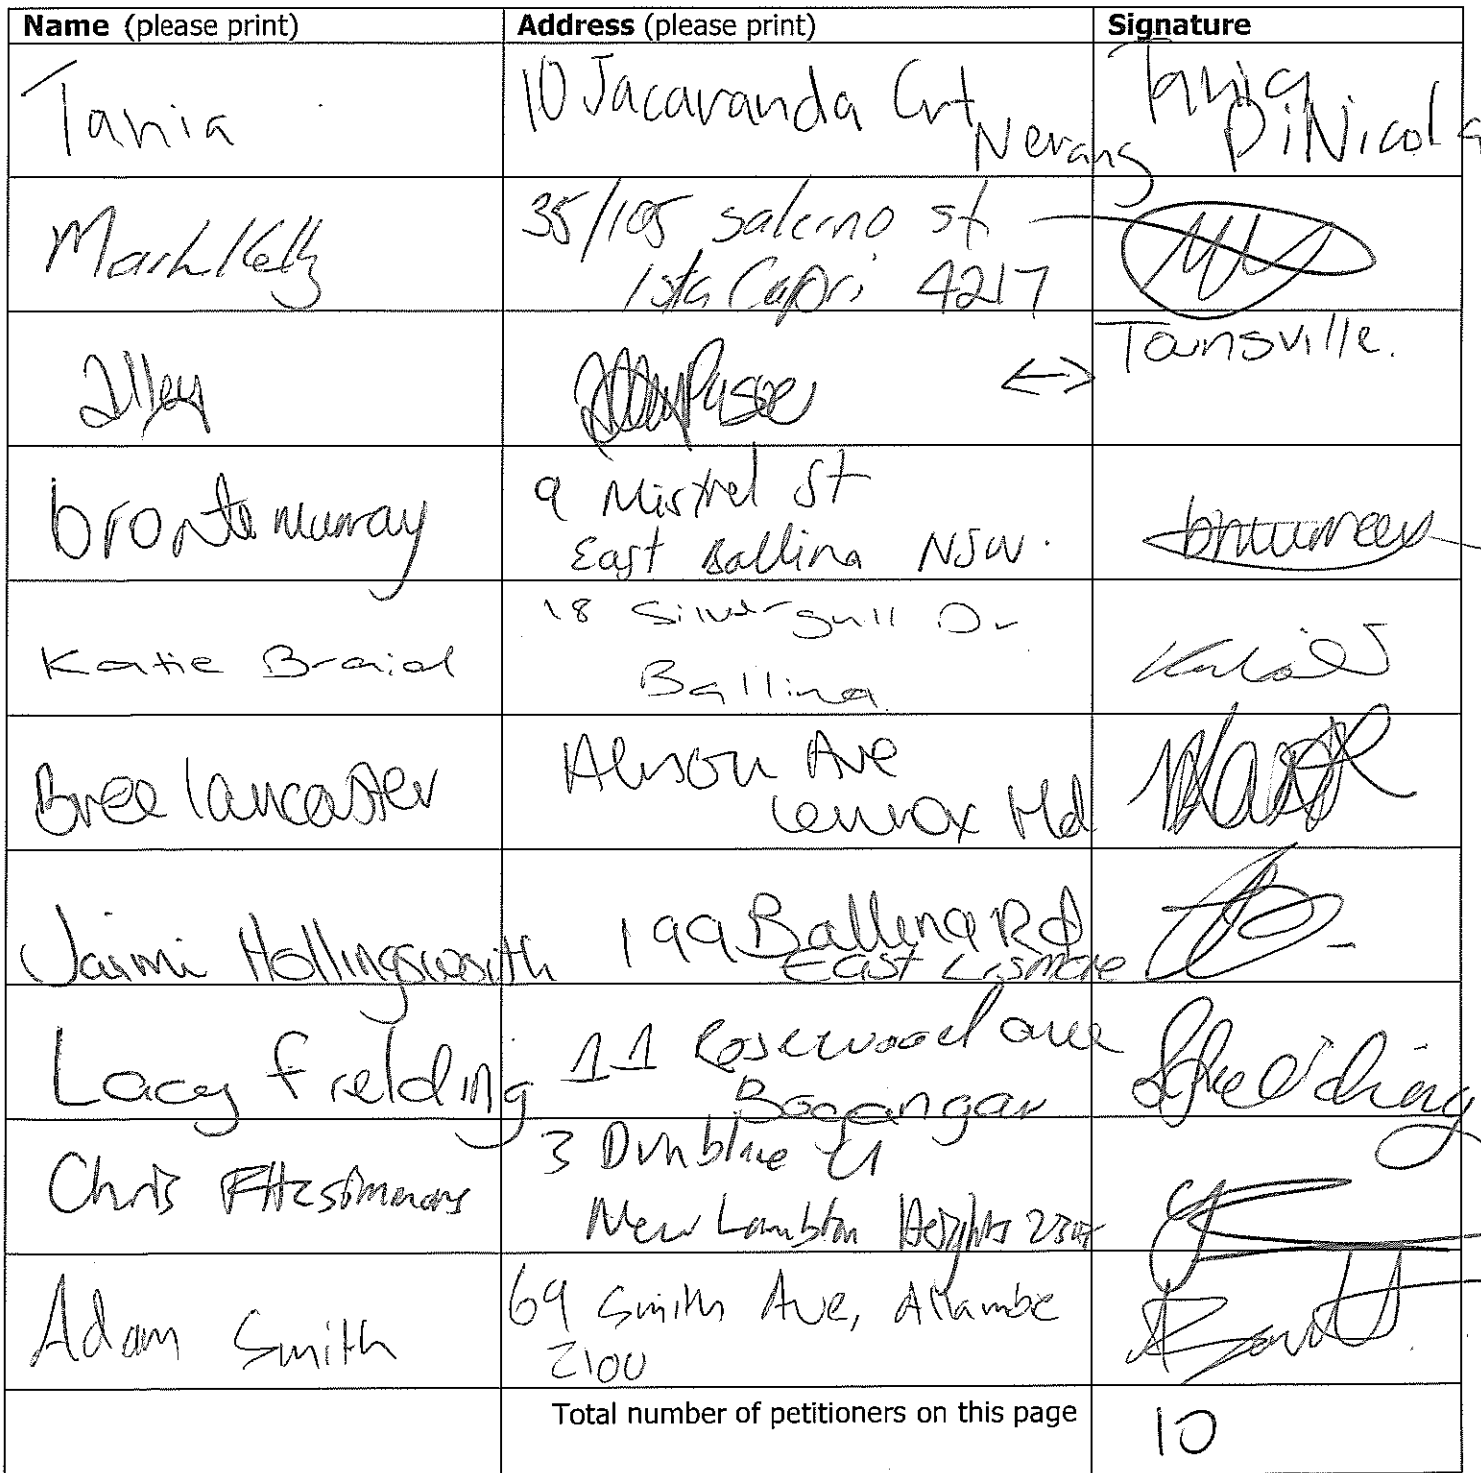 Name (please print) Address (please print) Signature
Tania 10 Jacaranda Crt Nerang Tania DiNicola
Mark Kelly 35/105 Salerno st
Isla Capri 4217
alley Pascoe ↔ Townsville.
bronte murray 9 Mistral St
East Ballina NSW.
Katie Braid 18 Silver gull Dr
Ballina
Bree lancaster Alison Ave
Lennox Hd
Jaimi Hollingsworth 199 Ballina Rd
East Lismore
Lacey fielding 11 Rosewood ave
Bogangar
Chris Fitzsimmons 3
New Lambton Heights
Adam Smith 69 Smith Ave, Allambie
2100
Total number of petitioners on this page 10